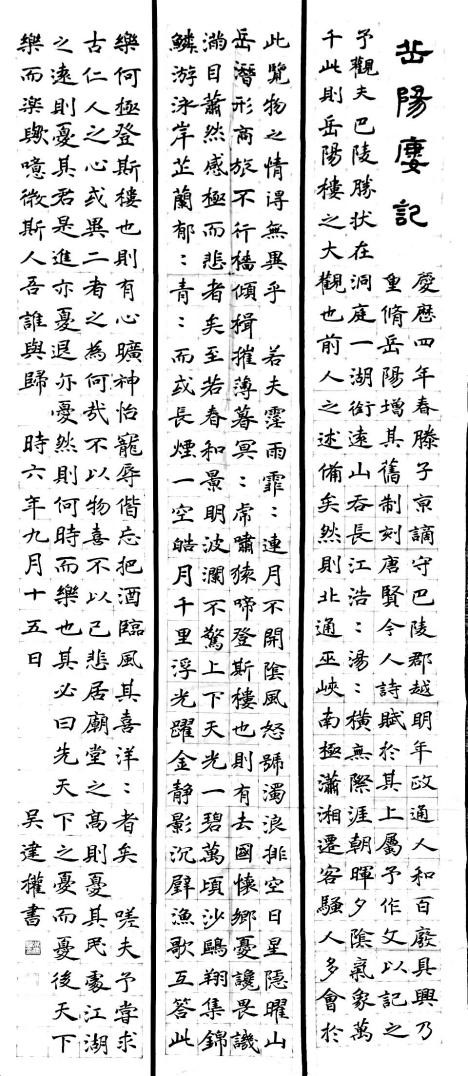 岳陽廔記
慶歷四年春滕子京謫守巴陵郡越明年政通人和百廢具興乃
重脩岳陽增其舊制刻唐賢今人詩賦於其上屬予作文以記之
予觀夫巴陵勝状在洞庭一湖銜遠山吞長江浩：湯：橫無際涯朝暉夕陰氣象萬
千此則岳陽樓之大觀也前人之述備矣然則北通巫峽南極瀟湘遷客騷人多會於
此覽物之情得無異乎 若夫霪雨霏：連月不開陰風怒號濁浪排空日星隱曜山
岳潛形商旅不行檣傾楫摧薄暮冥：虎嘯猿啼登斯樓也則有去國懷鄉憂讒畏譏
滿目蕭然感極而悲者矣至若春和景明波瀾不驚上下天光一碧萬頃沙鷗翔集錦
鱗游泳岸芷蘭郁：青：而或長煙一空皓月千里浮光躍金静影沉璧漁歌互答此
樂何極登斯樓也則有心曠神怡寵辱偕忘把酒臨風其喜洋：者矣 嗟夫予嘗求
古仁人之心或異二者之為何哉不以物喜不以己悲居廟堂之高則憂其民處江湖
之遠則憂其君是進亦憂退亦憂然則何時而樂也其必曰先天下之憂而憂後天下
樂而楽歟噫微斯人吾誰與歸 時六年九月十五日 吳建權書